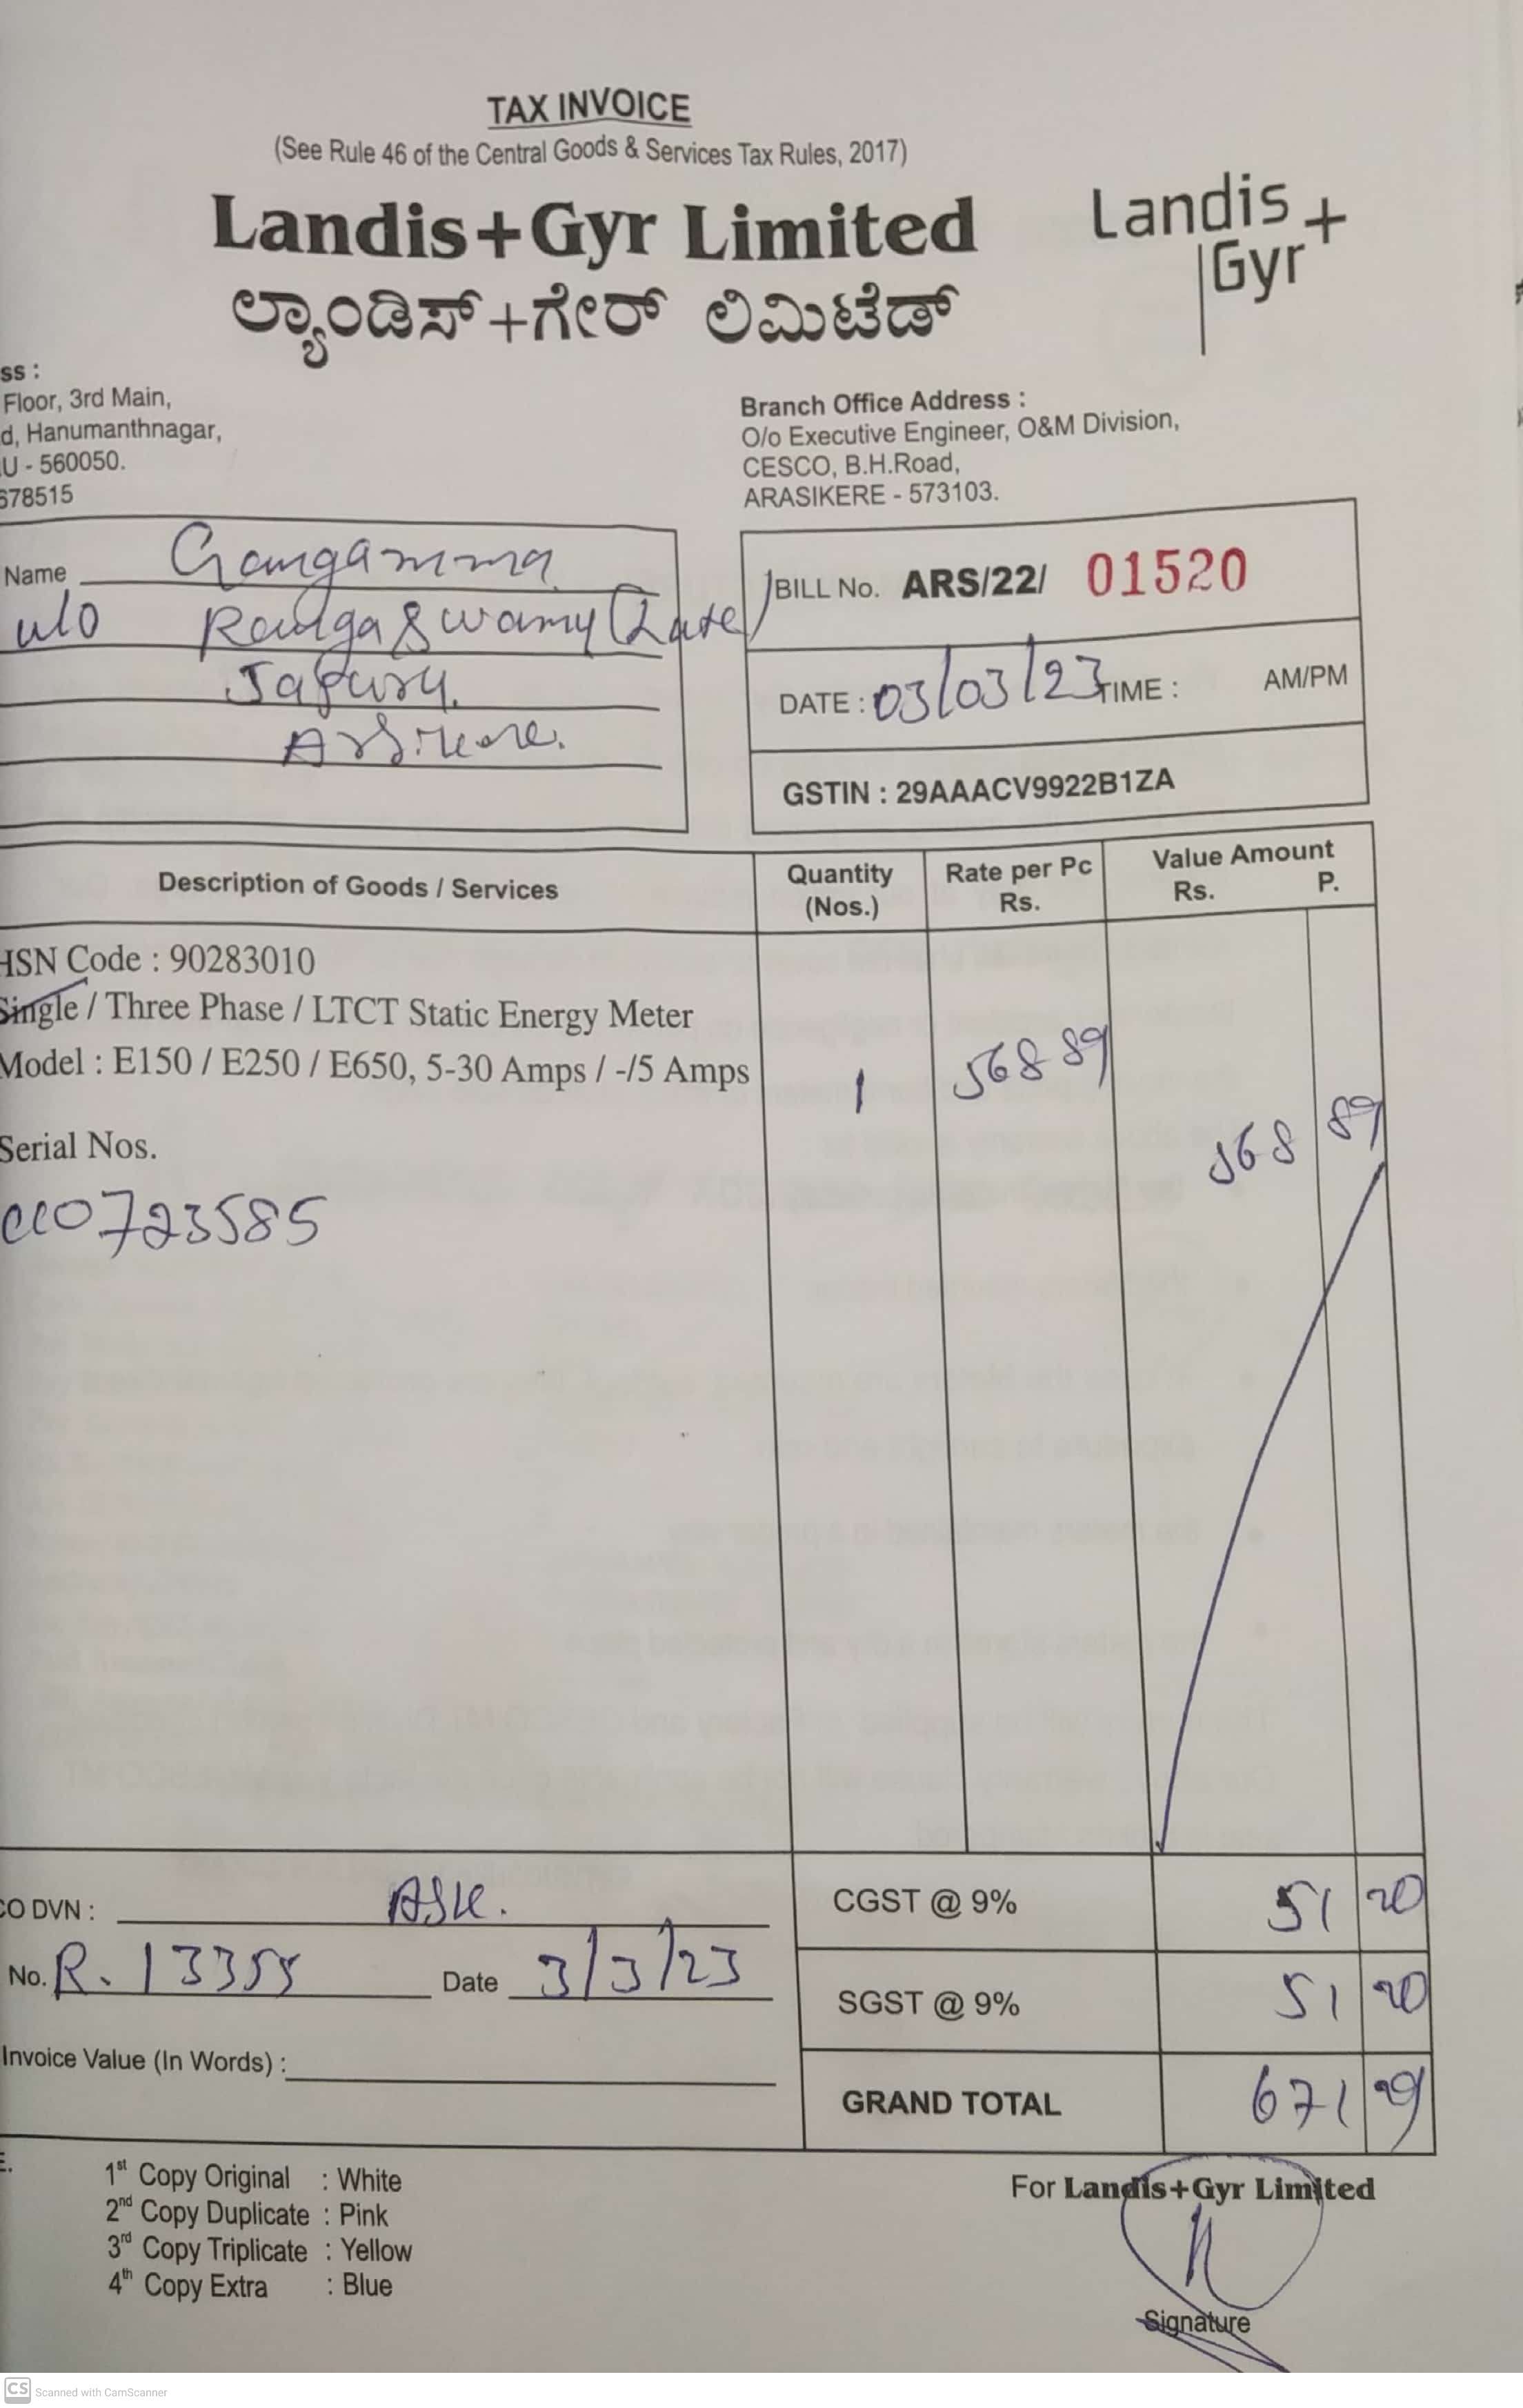 TAX INVOICE
(See Rule 46 of the Central Goods & Services Tax Rules, 2017)
Landis+Gyr Limited
ಲ್ಯಾಂಡಿಸ್+ಗೇರ್ ಲಿಮಿಟೆಡ್
Landis+
Gyr
ss :
Floor, 3rd Main,
d, Hanumanthnagar,
U - 560050.
678515
Branch Office Address :
O/o Executive Engineer, O&M Division,
CESCO, B.H.Road,
ARASIKERE - 573103.
Name Gangamma
w/o Ranga Swamy (Late)
Arsikere.
BILL No. ARS/22/ 01520
DATE : 03/03/23 TIME : AM/PM
GSTIN : 29AAACV9922B1ZA
Description of Goods / Services
Quantity (Nos.)
Rate per Pc Rs.
Value Amount
Rs. P.
HSN Code : 90283010
Single / Three Phase / LTCT Static Energy Meter
Model : E150 / E250 / E650, 5-30 Amps / -/5 Amps
1 568 89
568 89
Serial Nos.
0723585
CO DVN : ASK.
No. R. 13355 Date 3/3/23
Invoice Value (In Words) :
CGST @ 9% 51 20
SGST @ 9% 51 20
GRAND TOTAL 671 29
E.
1st Copy Original : White
2nd Copy Duplicate : Pink
3rd Copy Triplicate : Yellow
4th Copy Extra : Blue
For Landis+Gyr Limited
Signature
CS Scanned with CamScanner